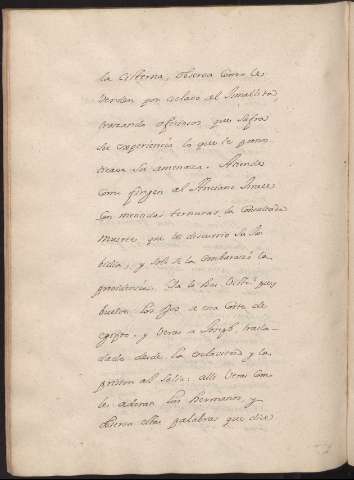 la cisterna, observa como le
venden por esclavo al Ismaelita,
trazando ofrecer que sufra
de experiencia lo que le pronos
ticava su amenaza. Atiende
como fingen al Anciano Israel
con mentidas ternuras, la
muerte, que les discurrio su In
bidia, y solo se la embarazó la
providencia. Ya le has visto? pues
buelve los ojos a esa Corte de
egipto, y veras a Joseph trasla
dado desde la esclavitud y la
prision al Solio: alli veras con
le adoran sus hermanos, y
observa estas palabras que dice